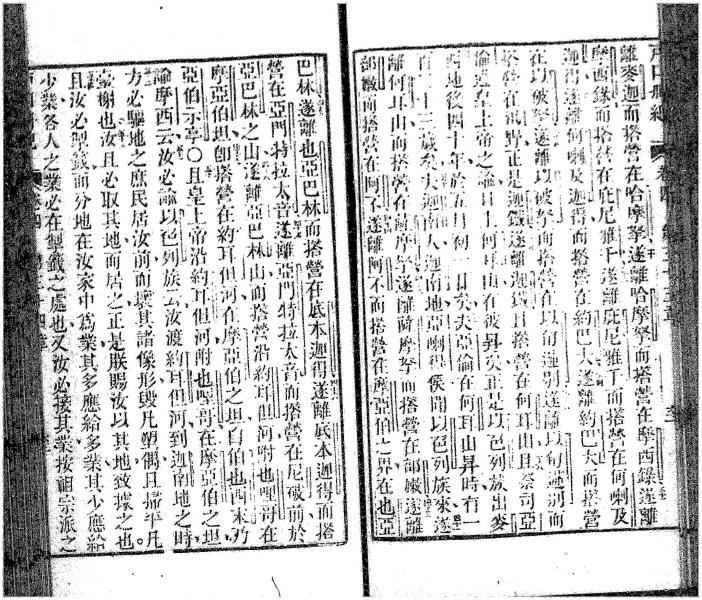 離麥迦而搭營在哈摩孥遂離哈摩孥而搭營在摩西錄遂離
摩西錄而搭營在庇尼雅千遂離庇尼雅千而搭營在何喇及
迦得遂離何喇及迦得而搭營在約巴大遂離約巴大而搭營
在以破孥遂離以破孥而搭營在以旬迦別遂離以旬迦別而
搭營在曠野正是迦鐵遂離迦鐵且搭營在何耳山且祭司亞
論遵皇上帝之諭且上何耳山在彼昇矣正是以色列族出麥
西地後四十年於五月初一日矣夫亞論在何耳山昇時有一
百二十三歲矣夫迦南人迦南地亞喇得侯聞以色列族來遂
離何耳山而搭營在薩摩孥遂離薩摩孥而搭營在部嫩遂離
部嫩而搭營在阿不遂離阿不而搭營在摩亞伯之界在也亞
巴林遂離也亞巴林而搭營在底本迦得遂離底本迦得而搭
營在亞門特拉太音遂離亞門特拉太音而搭營在尼破前於
亞巴林之山遂離亞巴林山而搭營沿約耳但河附也哩哥在
摩亞伯坦卽搭營在約耳但河在摩亞伯之坦自伯也西末乃
亞伯示亭〇且皇上帝沿約耳但河附也哩哥在摩亞伯之坦
諭摩西云汝必諭以色列族云汝渡約耳但河到迦南地之時
方必驅地之庶民居汝前而壞其諸像形毀凡塑偶且掃平凡
臺榭也汝且必取其地而居之正是朕賜汝以其地致據之也
且汝必製籤而分地在汝家中爲業其多應給多業其少應給
少業各人之業必在製籤之處也又汝必接其業按祖宗派之